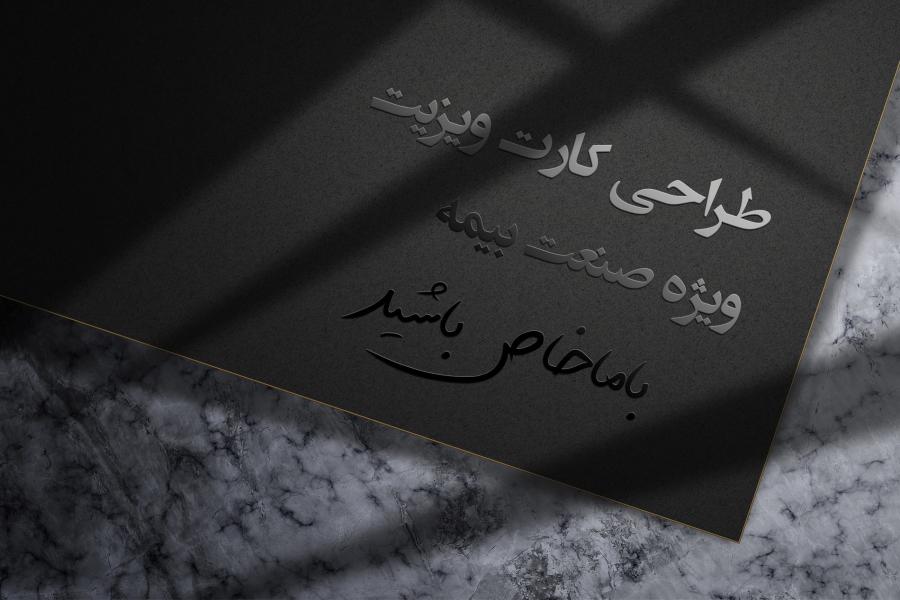 طراحی کارت ویزیت
ویژه صنعت بیمه
با ما خاص باشید